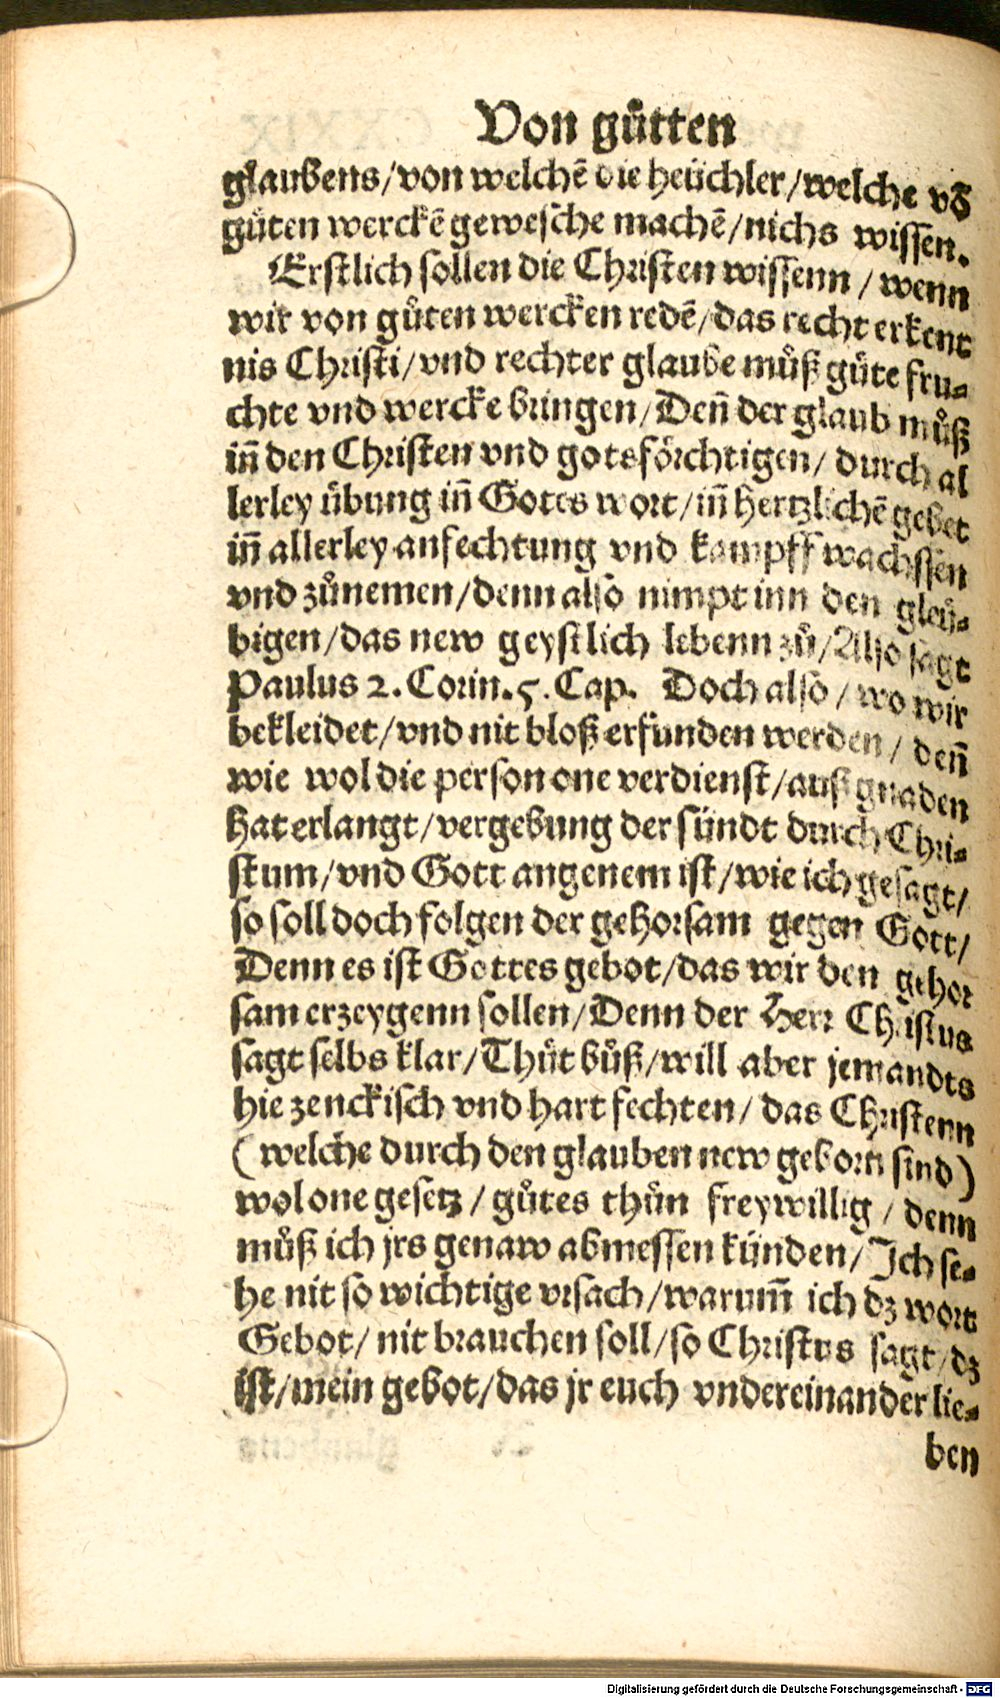 Von guͤtten
glaubens/von welchẽ die heüchler/welche võ
guͤten werckẽ gewesche machẽ/nichs wissen.
Erstlich sollen die Christen wissenn/wenn
wir von guͤten wercken redẽ/das recht erkent
nis Christi/vnd rechter glaube muͦß guͤte fru-
chte vnd wercke bringen/Deñ der glaub muͦß
iñ den Christen vnd gotsfoͤrchtigen/durch al
lerley uͤbung iñ Gottes wort/iñ hertzlichẽ gebet
iñ allerley anfechtung vnd kampff wachssen
vnd zuͦnemen/denn also nimpt inn den gleuͤ-
bigen/das new geystlich lebenn zuͦ/Also sagt
Paulus 2. Corin. 5. Cap. Doch also/wo wir
bekleidet/vnd nit bloß erfunden werden/deñ
wie wol die person one verdienst/auß gnaden
hat erlangt/vergebung der sündt durch Chri-
stum/vnd Gott angenem ist/wie ich gesagt/
so soll doch folgen der gehorsam gegen Gott/
Denn es ist Gottes gebot/das wir den gehor
sam erzeygenn sollen/Denn der Herr Christus
sagt selbs klar/Thuͤt buͤß/will aber jemandts
hie zenckisch vnd hart fechten/das Christenn
(welche durch den glauben new geborn sind)
wol one gesetz/guͤtes thuͤn freywillig/denn
muͦß ich jrs genaw abmessen künden/Ich se-
he nit so wichtige vrsach/warum̃ ich dz wort
Gebot/nit brauchen soll/so Christus sagt/dz
ist/mein gebot/das jr euch vndereinander lie-
ben
Digitalisierung gefördert durch die Deutsche Forschungsgemeinschaft - DFG